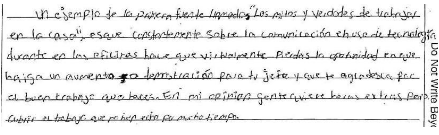 Un ejemplo de la primera fuente llamada, "Los mitos y verdades de trabajar
en la casa", es que constantemente sobre la comunicación e huso de tecnología
durante en las oficinas hace que virtualmente pierdas la oportunidad en que
haiga un aumento o demostración para tu jefe y que te agradesca por
el buen trabajo que haces. En mi opinion gente quiere horas extras para
cubrir el trabajo que
Do Not Write Bey